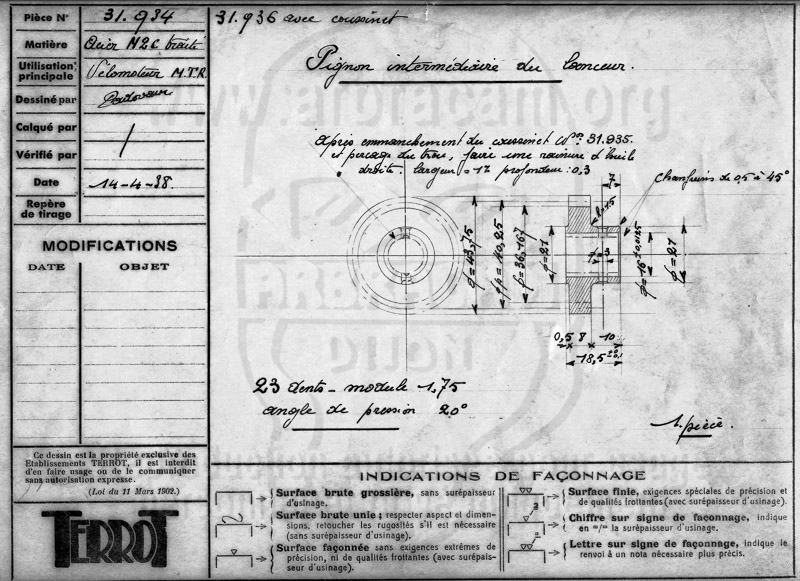 Pièce N° 31.934
Matière Acier N2C traité
Utilisation principale Vélomoteur M.T.R.
Dessiné par
Calqué par /
Vérifié par
Date 14-4-38.
Repère de tirage
MODIFICATIONS
DATE OBJET
Ce dessin est la propriété exclusive des
Etablissements TERROT, il est interdit
d'en faire usage ou de le communiquer
sans autorisation expresse.
(Loi du 11 Mars 1902.)
TERROT
31.936 avec coussinet
Pignon intermédiaire du lanceur.
après emmanchement du coussinet N° 31.935.
et perçage du trou, faire une rainure d'huile
droite. largeur = 1,5 profondeur : 0,3
chanfreins de 0,5 à 45°
7
φ = 43,75
φp = 40,25
φ = 36,167
φ = 21
φ = 21
0,5 8 10
18,5
23 dents - module 1,75
angle de pression 20°
1. pièce.
INDICATIONS DE FAÇONNAGE
Surface brute grossière, sans surépaisseur
d'usinage.
Surface brute unie ; respecter aspect et dimen-
sions, retoucher les rugosités s'il est nécessaire
(sans surépaisseur d'usinage).
Surface façonnée sans exigences extrêmes de
précision, ni de qualités frottantes (avec surépais-
seur d'usinage).
Surface finie, exigences spéciales de précision et
de qualités frottantes (avec surépaisseur d'usinage).
Chiffre sur signe de façonnage, indique
en m/m la surépaisseur d'usinage.
Lettre sur signe de façonnage, indique le
renvoi à un nota nécessaire plus précis.